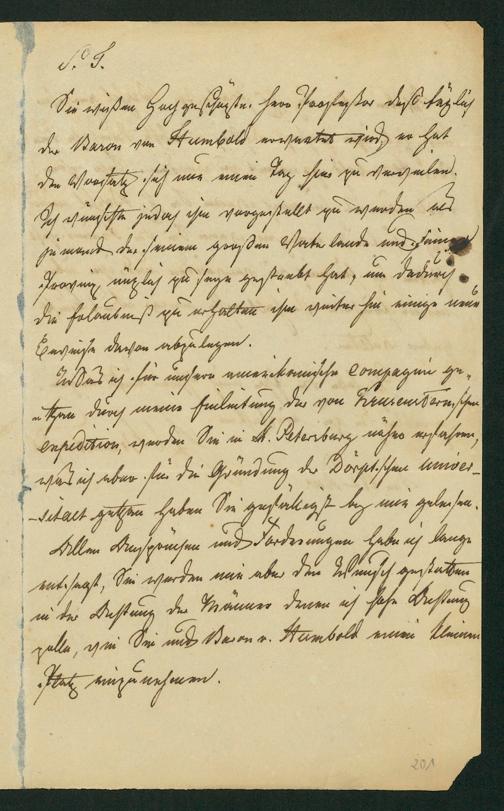 P. S.
Sie wißen Hochgeschäzter Herr Professor daß täglich
der Baron von Humbold erwartet wird, er hat
den Vorsatz sich nur einen Tag hier zu verweilen.
Ich wünschte jedoch ihm vorgestellt zu werden, als
jemand der seinem großen Vaterlande und seiner
Provinz nüzlich zu seyn gestrebt hat, um dadurch
die Erlaubniß zu erhalten ihm weiterhin einige neue
Beweise davon abzulegen.
Was ich für unsere amerikanische Compagnie ge-
than durch meine Einleitung der von Krusensternschen
expedition, werden Sie in St. Petersburg näher erfahren,
was ich aber für die Gründung der Dörptschen univer-
sitaet gethan haben Sie gefälligst bey mir gelesen.
Allen Ansprüchen und Forderungen habe ich lange
entsagt, Sie werden mir aber den Wunsch gestatten
in der Achtung der Männer denen ich hohe Achtung
zolle, wie Sie und Baron v. Humbold einen kleinen
Platz einzunehmen.
201